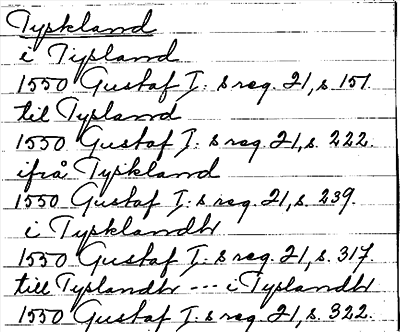 Tyskland
i Tijsland
1550 Gustaf I: s reg. 21, s. 151.
til Tysland
1550 Gustaf I: s reg. 21, s. 222.
ifrå Tyskland
1550 Gustaf I: s reg. 21, s. 239.
i Tysklandh
1550 Gustaf I: s reg. 21, s. 317.
till Tyslandh --- i Tyslandh
1550 Gustaf I: s reg. 21, s. 322.